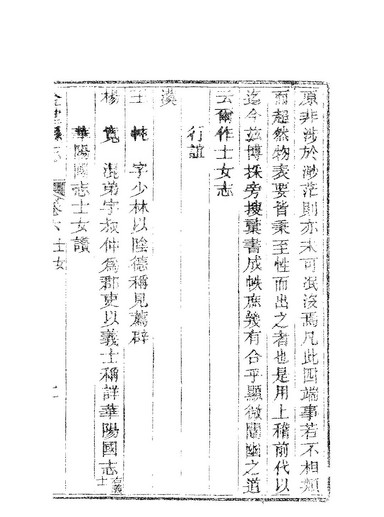 原非涉於渺茫則亦未可泯沒焉凡此四端事若不相類
而超然物表要皆秉至性而出之者也是用上稽前代以
迄今茲博採旁搜彙書成帙庶幾有合乎顯微闡幽之道
云爾作士女志
行誼
漢
王忳 字少林以陰德稱見薦辟
楊寬 混弟字叔仲為郡吏以義士稱詳華陽國志
華陽國志士女讚
士女